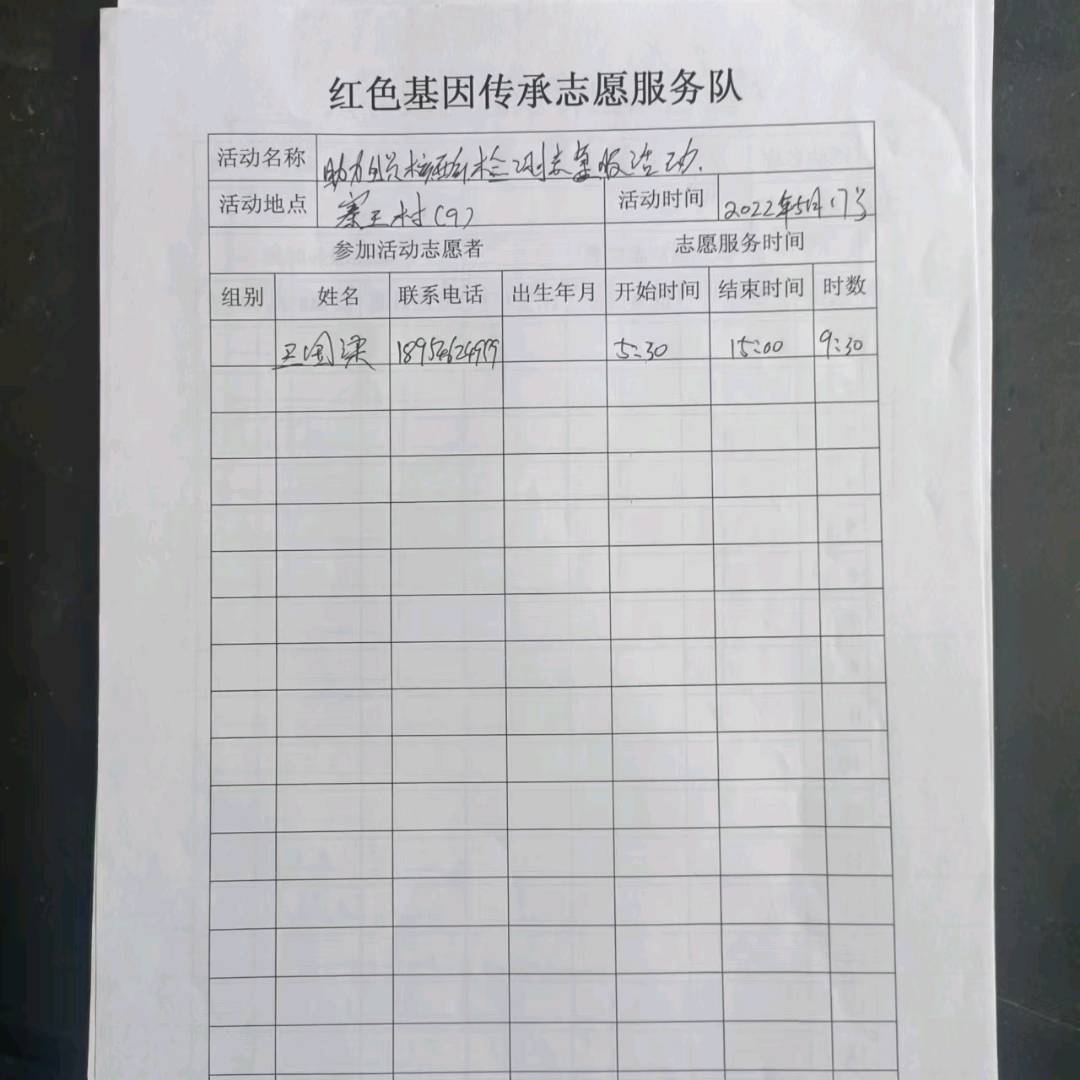 红色基因传承志愿服务队
活动名称 助力全员核酸检测志愿服活动.
活动地点 寨王村(9) 活动时间 2022年5月17号
参加活动志愿者 志愿服务时间
组别 姓名 联系电话 出生年月 开始时间 结束时间 时数
王国梁 5:30 15:00 9:30